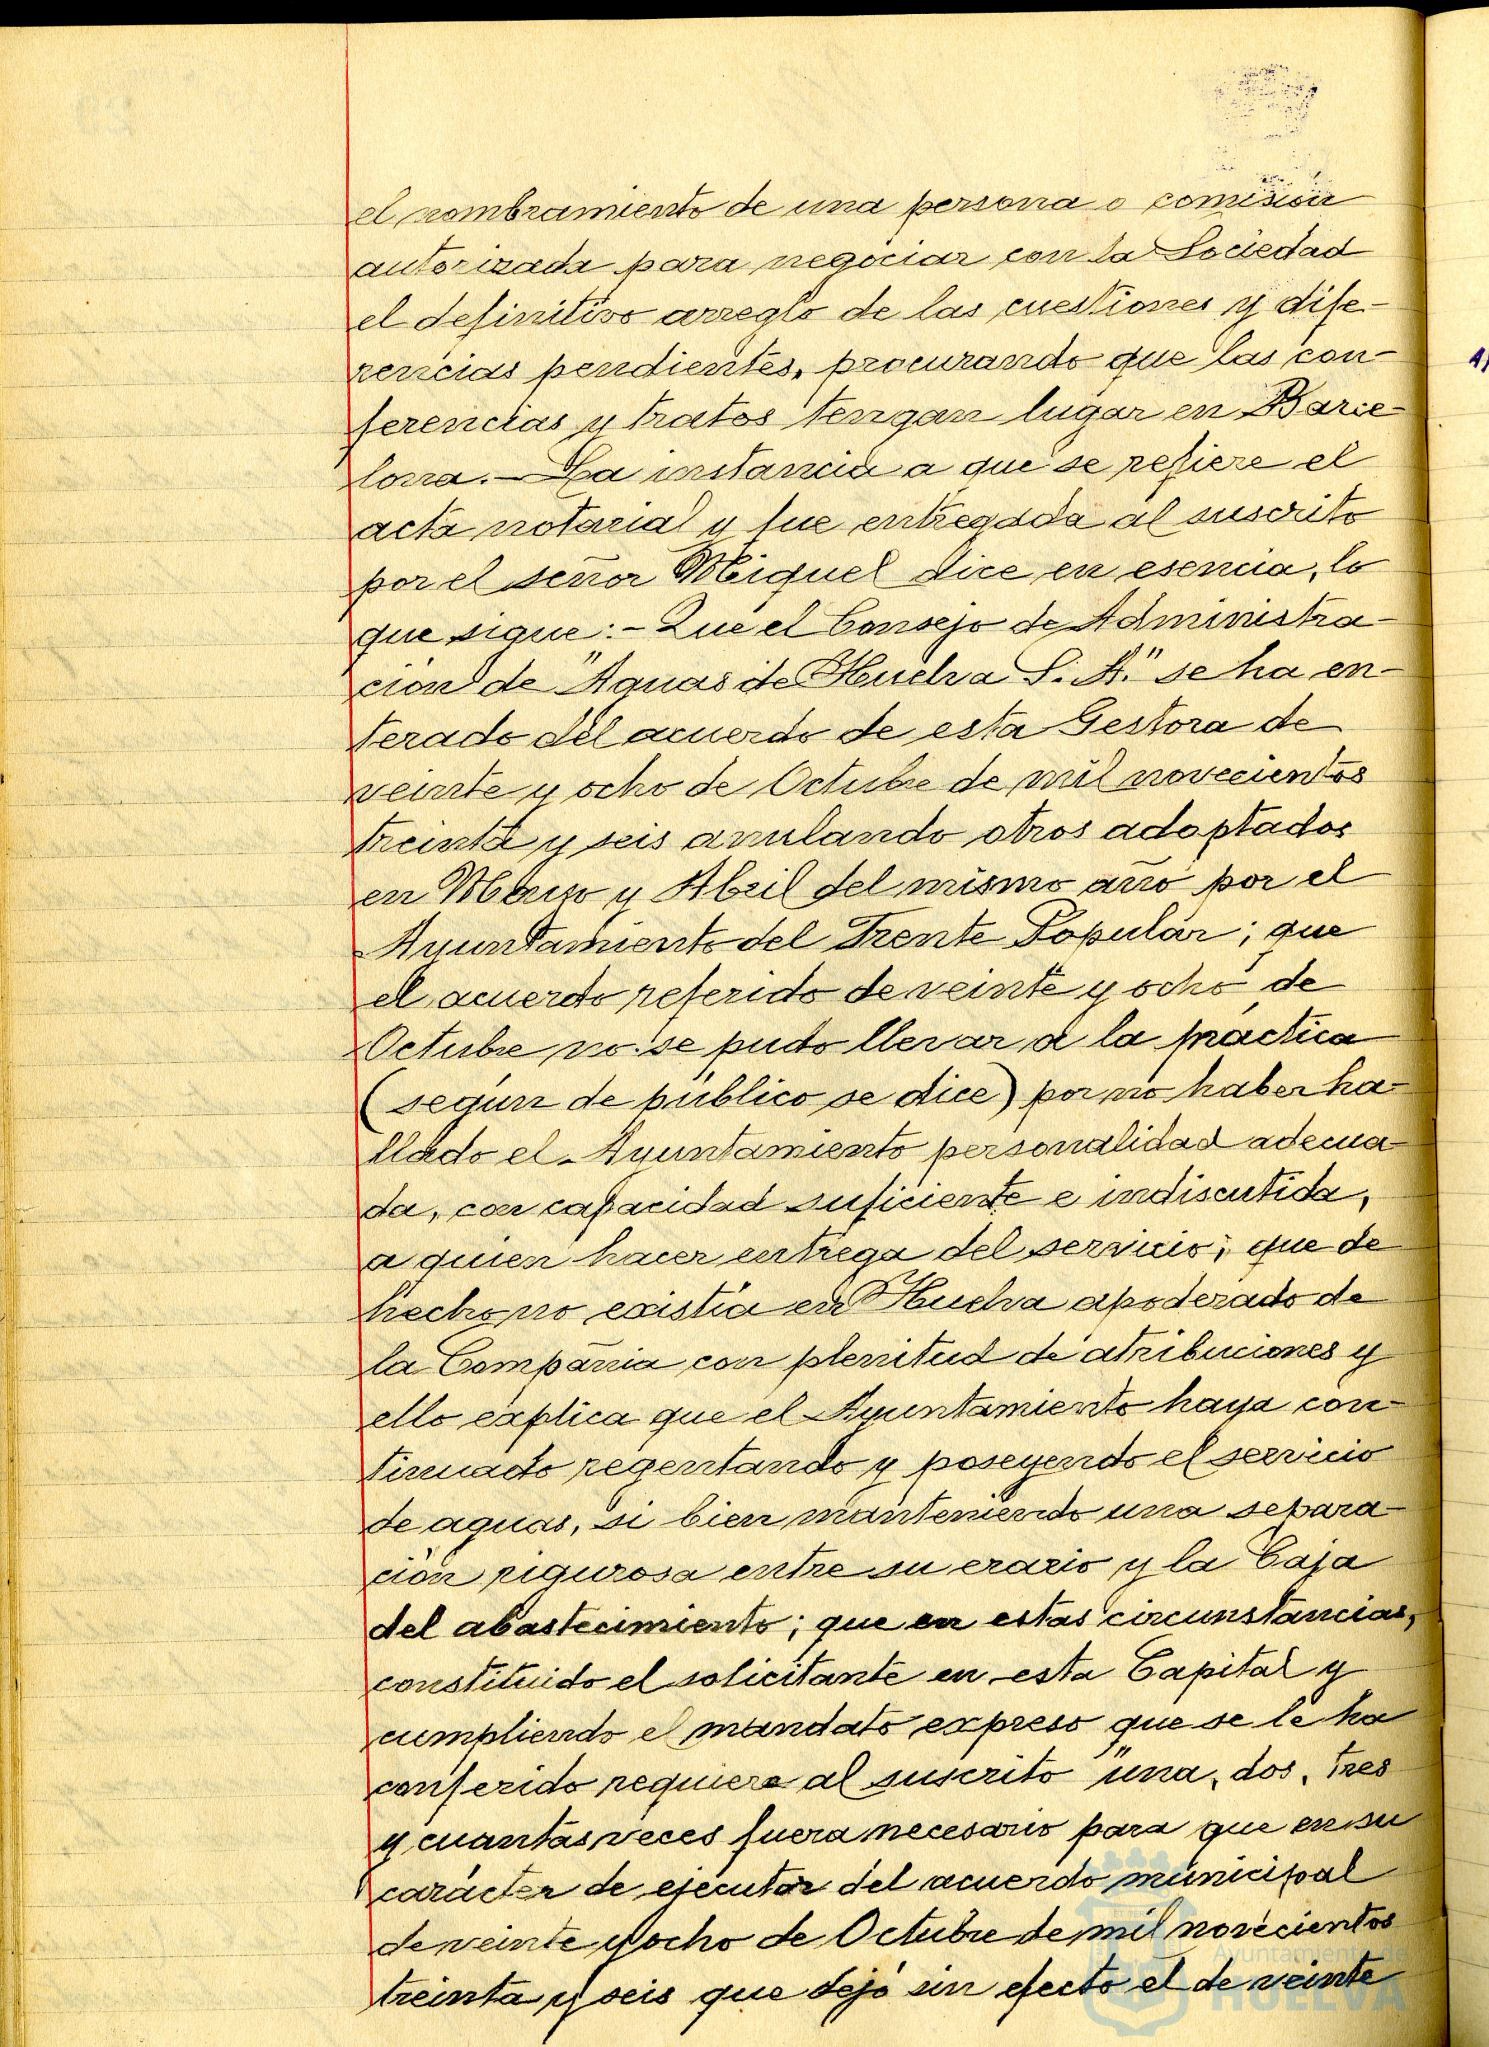 el nombramiento de una persona o comisión
autorizada para negociar con la Sociedad
el definitivo arreglo de las cuestiones y dife-
rencias pendientes, procurando que las con-
ferencias y tratos tengan lugar en Barce-
lona.- La instancia a que se refiere el
acta notarial y fue entregada al suscrito
por el señor Miquel dice en esencia, lo
que sigue:- Que el Consejo de Administra-
ción de "Aguas de Huelva S. A." se ha en-
terado del acuerdo de esta Gestora de
veinte y ocho de Octubre de mil novecientos
treinta y seis anulando otros adoptados
en Marzo y Abril del mismo año por el
Ayuntamiento del Frente Popular; que
el acuerdo referido de veinte y ocho de
Octubre no se pudo llevar a la practica
(según de público se dice) por no haber ha-
llado el Ayuntamiento personalidad adecua-
da, con capacidad suficiente e indiscutida,
a quien hacer entrega del servicio; que de
hecho no existía en Huelva apoderado de
la Compañia con plenitud de atribuciones y
ello explica que el Ayuntamiento haya con-
tinuado regentando y poseyendo el servicio
de aguas, si bien manteniendo una separa-
ción rigurosa entre su erario y la Caja
del abastecimiento; que en estas circunstancias,
constituido el solicitante en esta Capital y
cumpliendo el mandato expreso que se le ha
conferido requiere al suscrito "una, dos, tres
y cuantas veces fuera necesario para que en su
carácter de ejecutor del acuerdo municipal
de veinte y ocho de Octubre de mil novecientos
treinta y seis que dejó sin efecto el de veinte
Ayuntamiento de
HUELVA